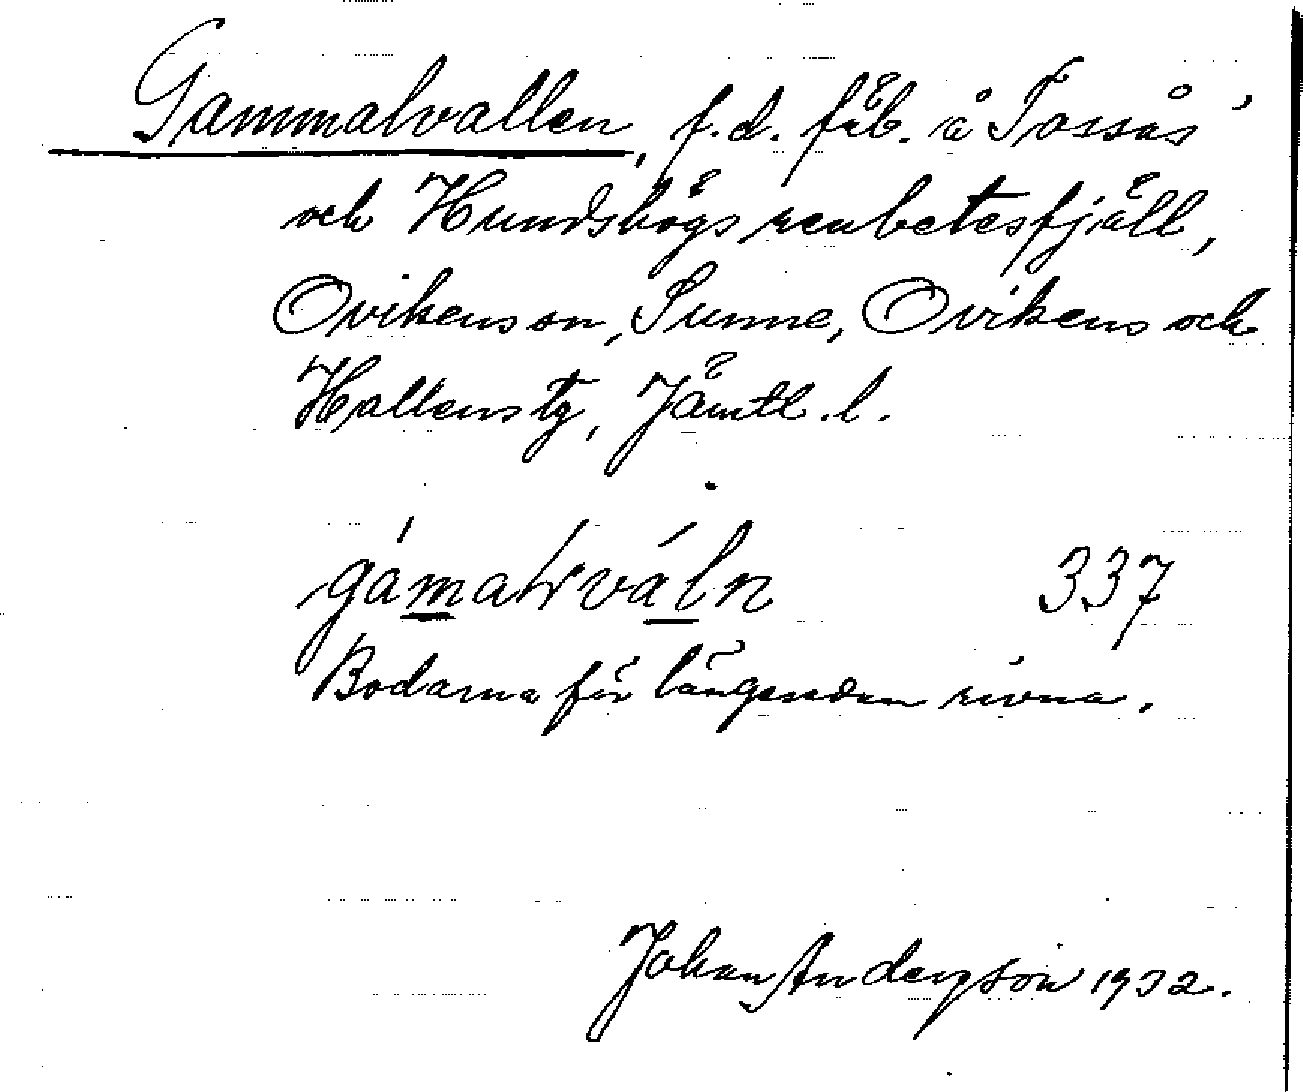 Gammalvallen, f.d. fäb. å Tossås
och Hundshögs renbetesfjäll,
Ovikens sn, Sunne, Ovikens och
Hallens tg, Jämtl. l.
337
Bodarna för längesedan rivna.
Johan Anderson 1932.